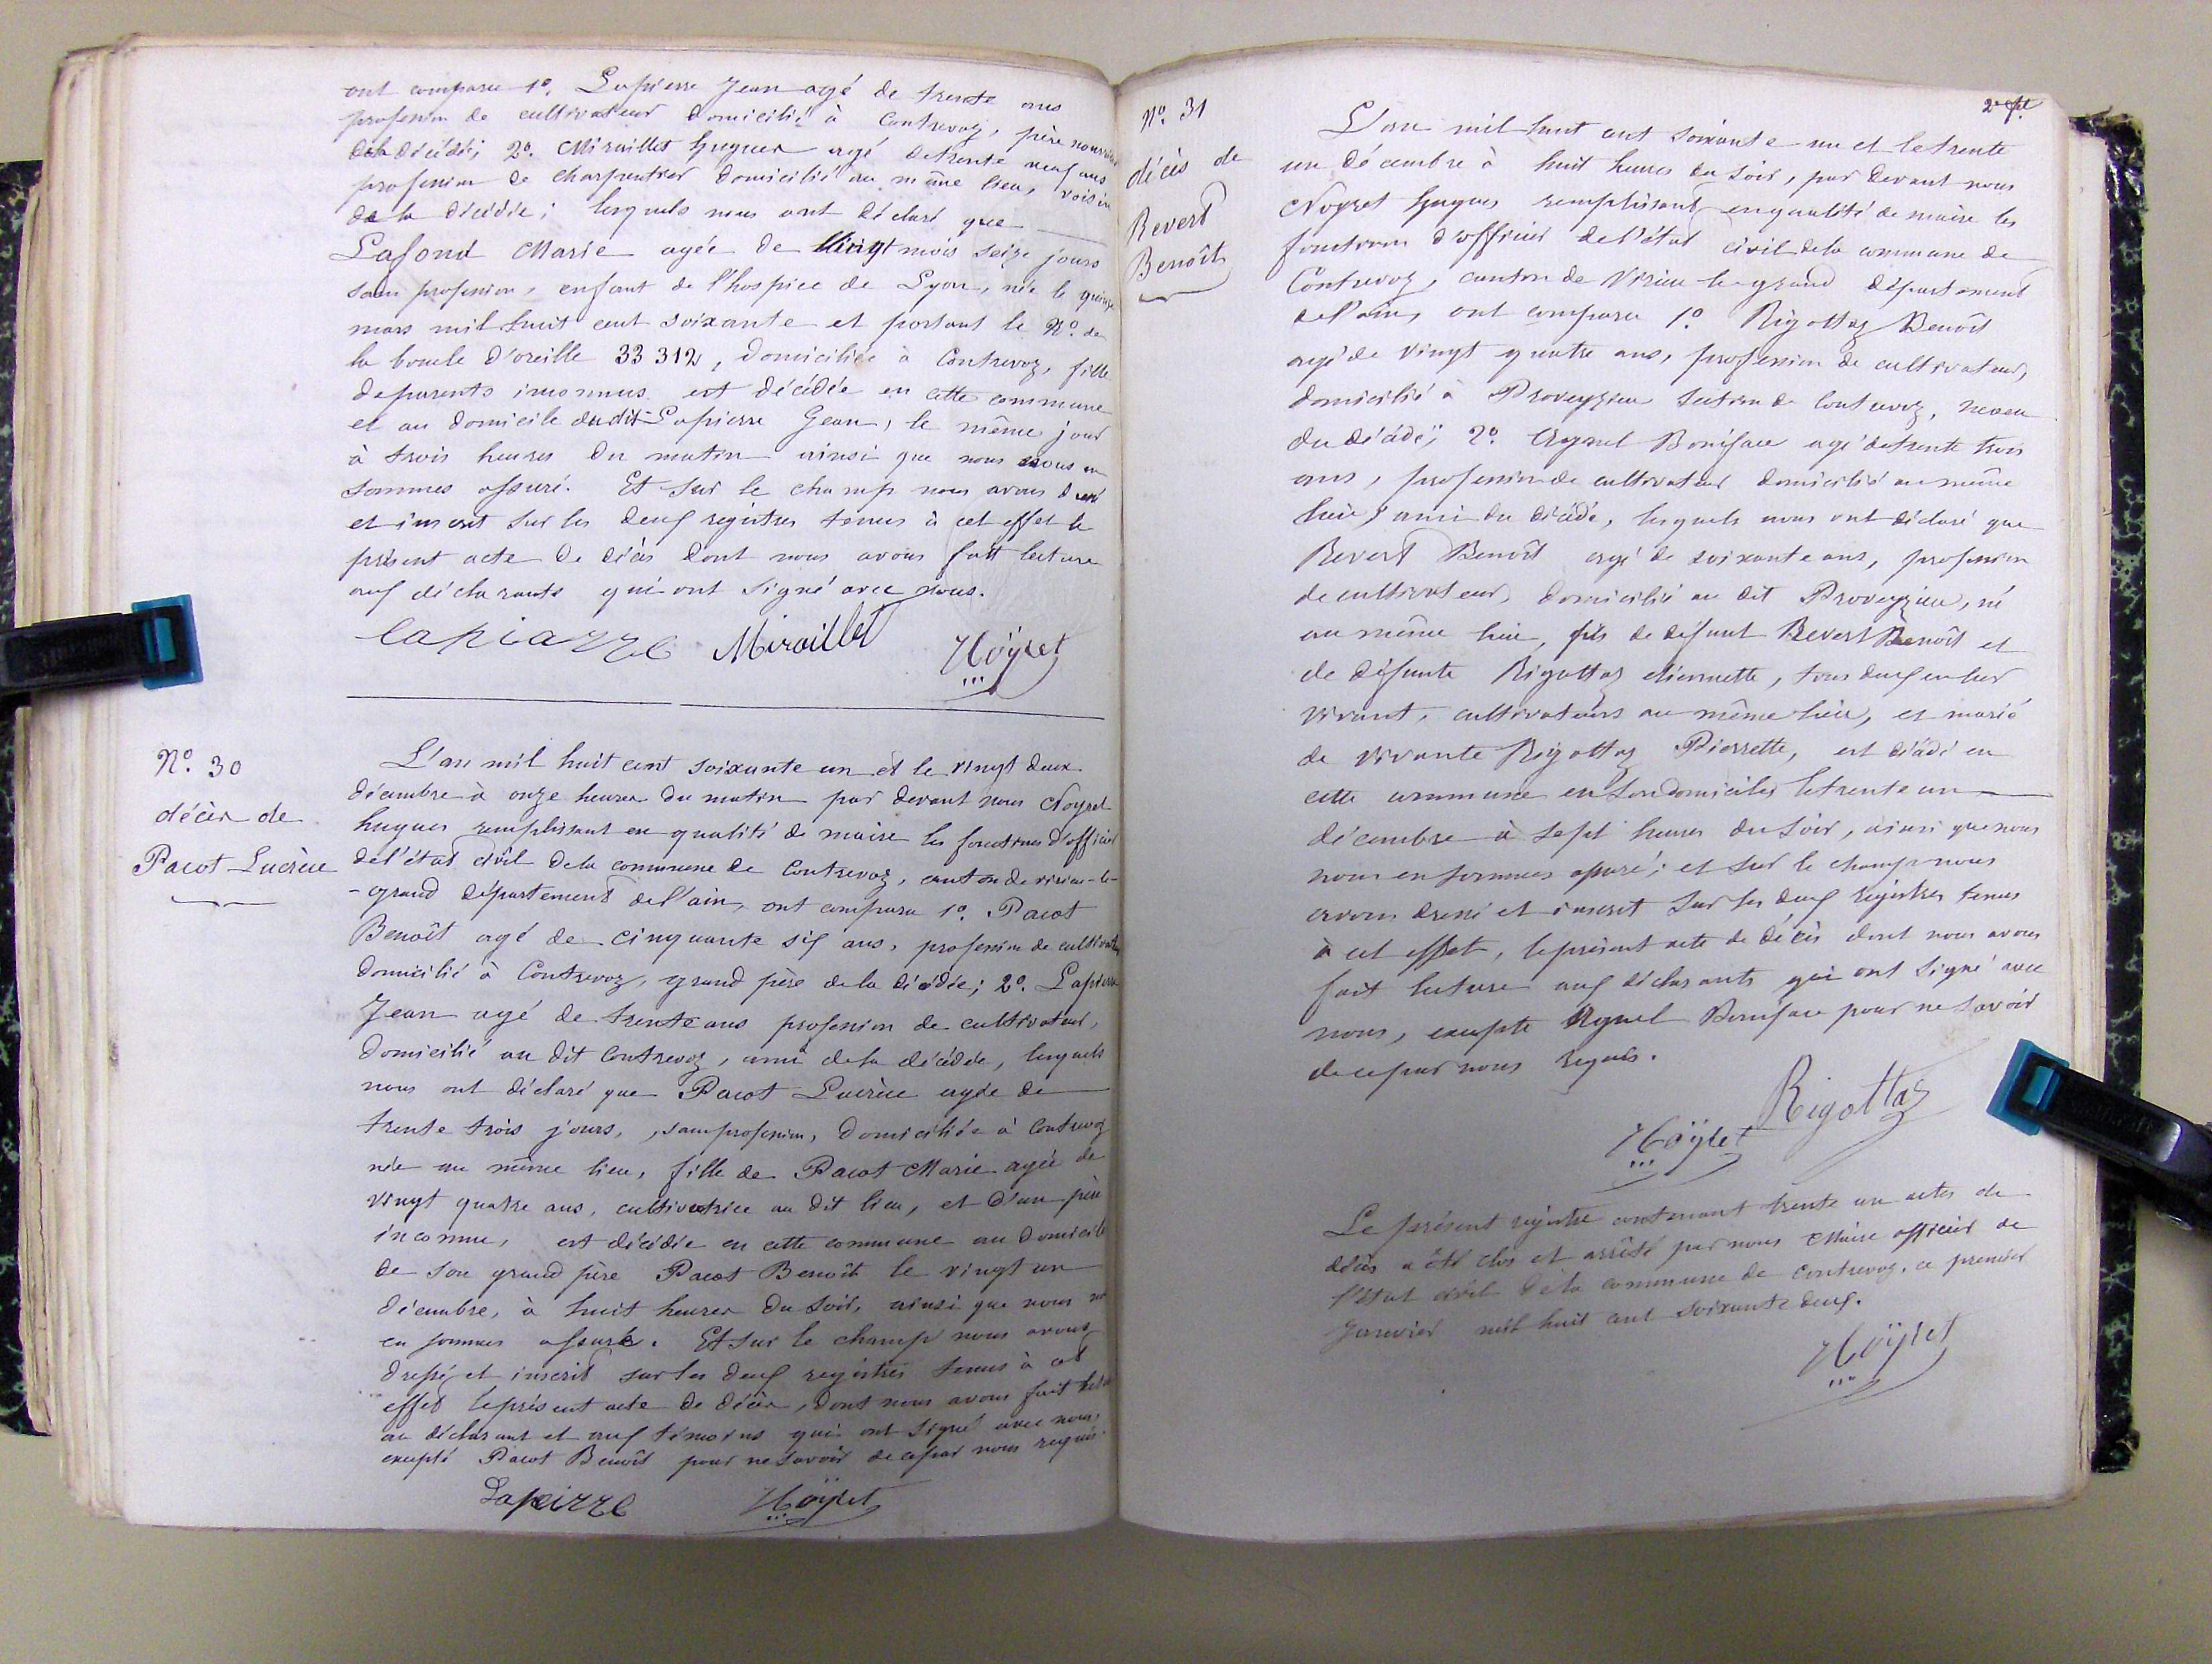 ont comparu 1º. Lapierre Jean agé de trente ans
profession de cultivateur domicilié à Contrevoz, père nourricier
dela décédée; 2º. Miraillet hugues agé detrente neuf ans
profession de charpentier domicilié au même lieu, voisin
de la décédée; lesquels nous ont déclaré que
Lafond Marie agée de Vingt mois seize jours
sans profession, enfant de l'hospice de Lyon, née le quinze
mars mil huit cent soixante et portant le Nº. de
la boucle d'oreille 33 312, domiciliée à Contrevoz, fille
deparents inconnus est décédée en cette commune
et au domicile dudit Lapierre Jean, le même jour
à trois heures du matin ainsi que nous nous en
sommes assuré. Et sur le champ nous avons dressé
et inscrit sur les deux registres tenus à cet effet le
présent acte de décès dont nous avons fait lecture
aux déclarants qui ont signé avec nous.
lapiarre Miraillet Noÿret
Nº. 30
décès de
Pacot Lucrèce
L'an mil huit cent soixante un et le vingt deux
décembre à onze heures du matin par devant nous Noyret
hugues remplissant en qualité de maire les fonctions d'officier
del'état civil dela commune de Contrevoz, canton de virieu-le-
-grand département del'ain, ont comparu 1º. Pacot
Benoît agé de cinquante six ans, profession de cultivateur
domicilié à Contrevoz, grand père dela décédée; 2º. Lapierre
Jean agé de trente ans profession de cultivateur,
domicilié au dit Contrevoz, ami dela décédée, lesquels
nous ont déclaré que Pacot Lucrèce agée de
trente trois jours, sans profession, domiciliée à Contrevoz
née au même lieu, fille de Pacot Marie agée de
vingt quatre ans, cultivatrice au dit lieu, et d'un père
inconnu, est décédée en cette commune au domicile
de son grand père Pacot Benoît le vingt un
décembre, à huit heures du soir, ainsi que nous nous
en sommes assuré. Et sur le champ nous avons
dressé et inscrit sur les deux registres tenus à cet
effet leprésent acte de décès, dont nous avons fait lecture
au déclarant et aux témoins qui ont signé avec nous,
excepté Pacot Benoît pour ne savoir de cepar nous requis.
Lapeirre Noÿret
2e fet
Nº. 31
décès de
Revert
Benoît
L'an mil huit cent soixante un et letrente
un décembre à huit heures du soir, par devant nous
Noyret hugues remplissant enqualité de maire les
fonctions d'officier del'état civil dela commune de
Contrevoz, canton de Virieu le grand département
del'ain, ont comparu 1º Rigottaz Benoît
agé de vingt quatre ans, profession de cultivateur,
domicilié à Proveyzieu section de Contrevoz, neveu
du décédé; 2º. Aynel Boniface agé detrente trois
ans, profession de cultivateur domicilié au même
lieu, ami du décédé, lesquels nous ont déclaré que
Revert Benoît agé de soixante ans, profession
de cultivateur, domicilié au dit Proveyzieu, né
au même lieu, fils de défunt Revert Benoît et
de défunte Rigottaz etiennette, tous deux enleur
vivant, cultivateurs au même lieu, et marié
de vivante Rigottaz Pierrette, est décédé en
cette commune en son domicile letrente un
décembre à sept heures du soir, ainsi que nous
nous en sommes assuré; et sur le champ nous
avons dressé et inscrit sur les deux registres tenus
à cet effet, leprésent acte de décès dont nous avons
fait lecture aux déclarants qui ont signé avec
nous, excepté Aynel Boniface pour ne savoir
de cepar nous requis.
Rigottaz
Noÿret
Le présent registre contenant trente un actes de
décès a été clos et arrêté par nous Maire officier de
l'état civil dela commune de Contrevoz, ce premier
Janvier mil huit cent soixante deux.
Noÿret